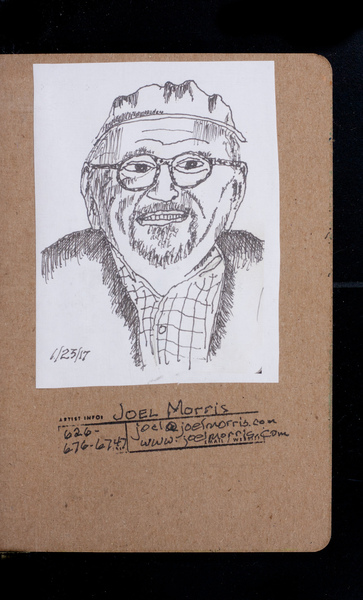 6/23/17
ARTIST INFO: JOEL Morris
626- joel@joelmorris.com
676-6747 www.joelmorris.com